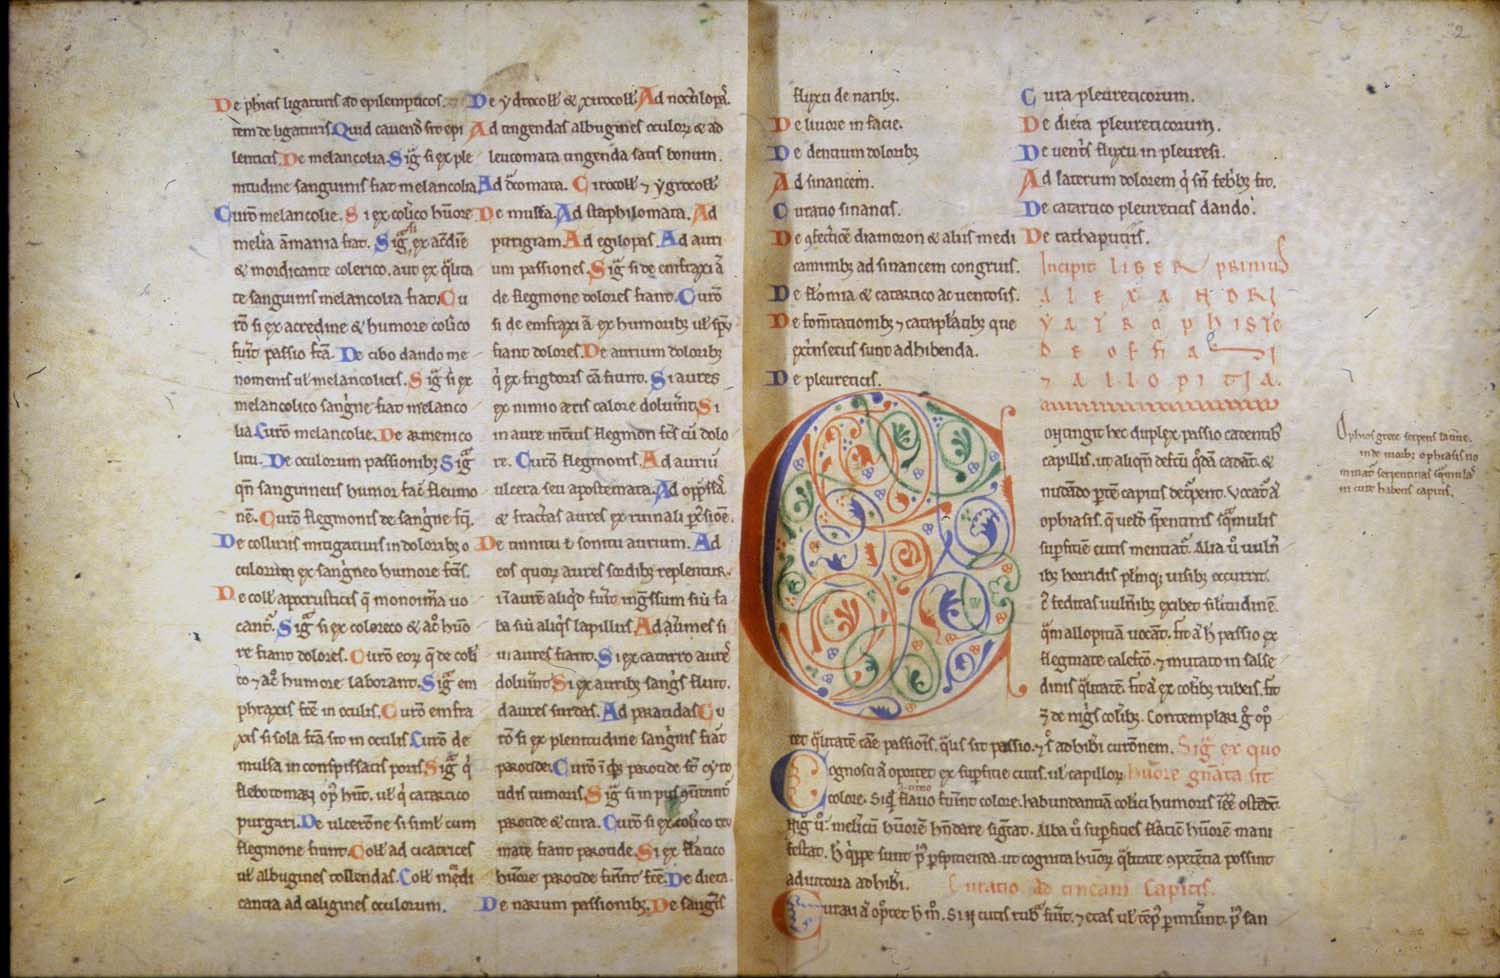 De phicis ligaturis ad epilempticos.
Item de ligaturis. Quid cavend̄ sit epi
lenticis. De melancolia. Sig̅ si ex ple
nitudine sanguinis fiat melancolia
Curō melancolie. Si ex col̕ico hūore
melīa āmania fiat. Sig̅ ex ac̄dīe
& mordicante colerico, aut ex q̄lita
te sanguinis melancolia fiat. Cu
rō si ex acredine & humore col̕ico
fuīt passio fc̄a. De cibo dando me
nomenis ul̕ melancolicis. Sig̅ si ex
melancolico sang̕ne fiat melanco
lia Curō melancolie. De armenico
litu. De oculorum passionibꝫ Sig̅
qn̄ sanguineus humor fac̄ fleumo
nē. Curō flegmonis de sang̕ne fc̄i.
De colluriis mitigativis in doloribꝫ o
culorum ex sang̕neo humore fc̄is.
De coll̕ apocrusticis q̄ monoim̄a vo
cant̕. Sig̅ si ex colereco & ac̄o hūo
re fiant dolores. Curō eorꝝ q̄ de col̕i
co ⁊ ac̄o humore laborant. Sig̅ em
phraxis fc̄e in oculis. Curō emfra
xis si sola fc̄a sit in oculis Curō de
mulsa in conspissatis poris Sig̅ q̕
flebotomari op̕ hn̄t. ul̕ q̕ catartico
purgari. De ulcerōne si simł cum
flegmone fiunt. Coll̕ ad cicatrices
ul̕ albugines tollendas. Coll̕ mēdi
cantia ad caligines oculorum.
De ydrocoll̕ & xirocoll̕. Ad noctilopā.
Ad tingendas albugines oculorꝝ & ad
leucomata tingenda satis bonum.
Ad ōtomata. Cirocoll̕ ⁊ ygrocoll̕
De mulsa. Ad staphilomata. Ad
pitirigiam. Ad egilopas. Ad auri
um passiones. Sig̅ si de emfraxi ā
de flegmone dolores fiant. Curō
si de emfraxi ā ex humoribꝫ ul̕ sp̄u
fiant dolores. De aurium doloribꝫ
q̕ ex frigdoris cā fiunt. Si aures
ex nimio aeris calore doluīnt. Si
in aure intus flegmon fc̄s cū dolo
re. Curō flegmonis. Ad auriū
ulcera seu apostemata. Ad opp̄ssā
& fractas aures ex ruinali p̄cusiōē.
De tinnitu & sonitu aurium. Ad
eos quorꝝ aures sordibꝫ replentur.
Si ī aurē aliq̕d fuīt ing̕ssum siū fa
ba siū aliq̕s lapillus Ad aq̄ mes si
in aures fiant. Si ex catarro aurē
doluīnt Si ex auribꝫ sang̕s fluit.
Ad aures surdas. Ad parotidas Cu
rō si ex plenitudine sang̕nis fiat
parotide. Curō
tidis tumoris. Sig̅ si in pus
parotide & cura. Curō si ex col̕ico
mate fiant parotide. Si ex fl̄atico
hūore parotide fuīnt fc̄e. De dieta.
De narium passionibꝫ. De sang̕is
fluxu de naribꝫ.
De livore in facie.
De dentium doloribꝫ
Ad sinancem.
Curatio sinancis.
De ꝯfectiōe diamoron & aliis medi
caminibꝫ ad sinancem congruis.
De flo̅mia & catartico ac ventosis.
De fom̄tationibꝫ ⁊ catapl̕atibꝫ que
ext̕insecus sunt adhibenda.
De pleureticis.
Cura pleureticorum.
De dieta pleureticorum.
De vent̕s fluxu in pleuresi.
Ad laterum dolorem q̕ sn̄ feb̕bꝫ fit.
De catartico pleureticis dando.
De cathaputiis.
Incipit LIBER primus
ALEXANDRI
YATROS phiste
De offia I
⁊ ALLOPITIA.
COntingit hec duplex passio cadentibꝫ
capillis. ut aliqn̄ defc̄u q̄dā cadāt. &
nudādo p̄tem capitis detq̄pent. Vocat̕ ā
ophiasis. q̄ velō s̄pentinis sq̄mulis
sup̄ficiē cutis mentiat̕. Alia ū vuln̄
ibꝫ horridis pl̄imq; visibꝫ occurrit.
⁊ feditas vuln̄ibꝫ exibet sil̕itudinē.
q̄m allopitiā vocāt. fit ā h̕ passio ex
flegmate calefc̄o. ⁊ mutato in salse
dinis q̄litatē. fit ā ex col̕ibꝫ rubeis. fit
⁊ de nig̕s col̕ibꝫ. Contemplari g̕ op̄
tet q̄litatē cāe passiōis. q̄lis sit passio. ⁊ s̕ adhib̕i curōnem. Sig̅ ex quo
Cognosci ā oportet ex sup̄ficie cutis. ul̕ capillorꝝ hūore gn̄ata sit
colore. Si q̕ flavo fuīnt colore. habundantiā col̕ici humoris ēē̄ ostēdūt.
Nig̕ ū. mel̄icū hūorē hn̄dare sig̅cat. Alba ū superficies fl̄aticū hūorē mani
festat. h̕ q̕ppe sunt p̕ p̄spicienda. ut cognita hūorꝝ q̄litate ꝯpetentia possint
adiutoria adhib̕i. Curatio ad tineam capitis.
Curari ā op̄tet h̕ m̊. Si n̄ cutis rubā fuīt. ⁊ etas ul̕ tēp̕ p̄miserint. p̕ san
Ophios grece serpens latine.
inde morbꝫ ophiasis no
minat̕ serpentinas sq̄mulas
in cute habens capitis.
2